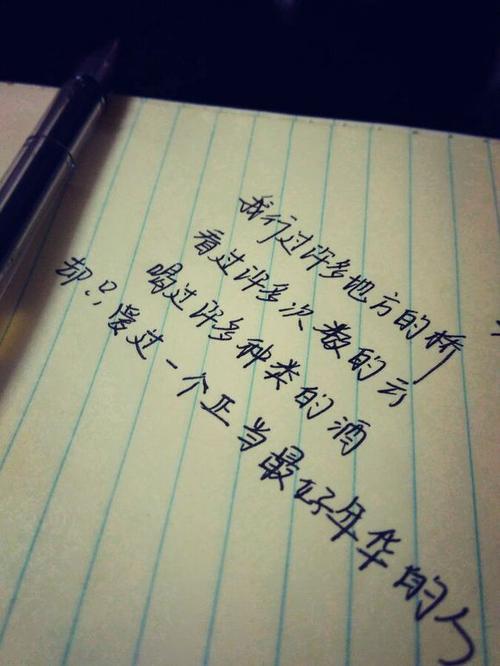 我行过许多地方的桥
看过许多次数的云
喝过许多种类的酒
却只爱过一个正当最好年华的人